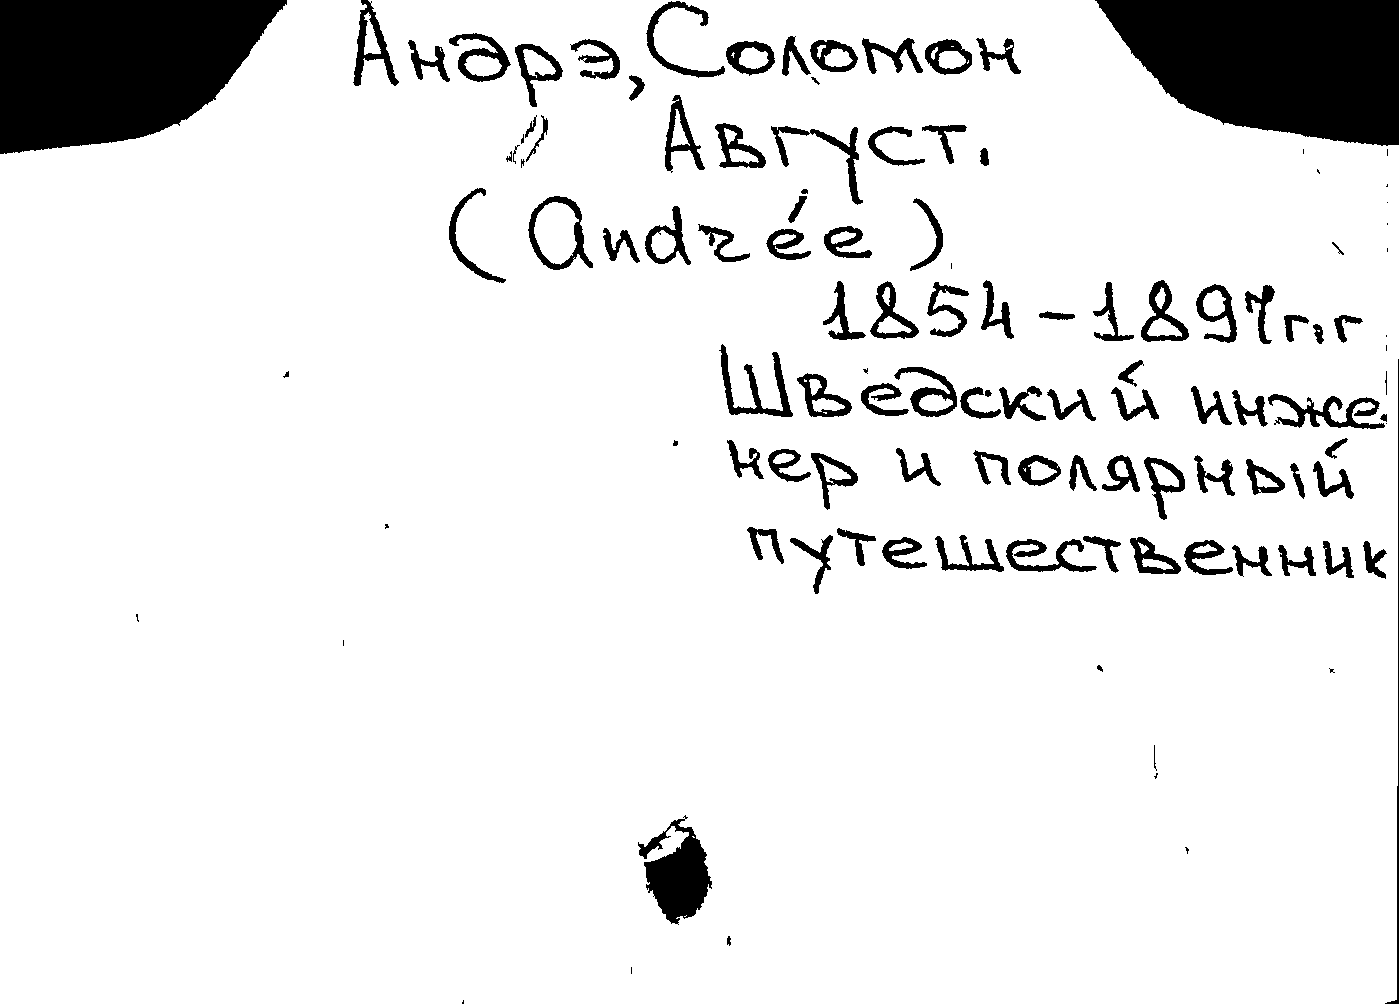 Андрэ, Соломон
Август.
(Andrée)
1854-1897г.г
Шведский инже-
нер и полярный
путешественник